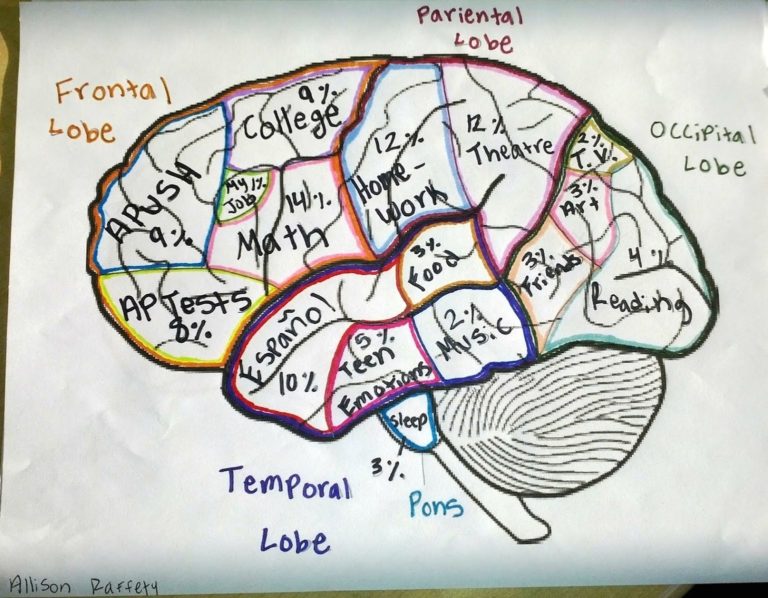 Pariental
Lobe
Frontal
Lobe
Occipital
Lobe
College
9%
APUSH
9%
My Job
1%
Math
14%
AP Tests
8%
Home-
work
12%
12%
Theatre
2%
T.V.
3%
Art
3%
Friends
4%
Reading
3%
Food
Español
10%
5%
Teen
Emotions
2%
Music
Sleep
3%
Pons
Temporal
Lobe
Allison Raffety